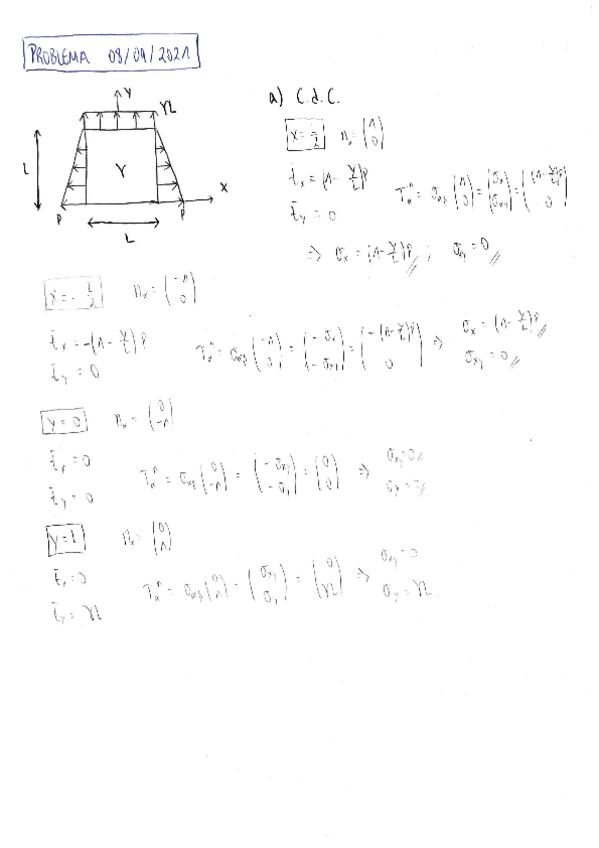 PROBLEMA 08/09/2021
Y
γL
L
γ
X
P
P
L
a) C.d.C.
x = L/2   nα = (1 0)
t̄x = (1 - y/L)P
t̄y = 0
Tαⁿ = σαβ (1 0) = (σx σxy) = ((1 - y/L)P 0)
⇒ σx = (1 - y/L)P ; σxy = 0
x = - L/2   nα = (-1 0)
t̄x = -(1 - y/L)P
t̄y = 0
Tαⁿ = σαβ (-1 0) = (-σx -σxy) = (-(1 - y/L)P 0) ⇒ σx = (1 - y/L)P
σxy = 0
y = 0   nα = (0 -1)
t̄x = 0
t̄y = 0
Tαⁿ = σαβ (0 -1) = (-σxy -σy) = (0 0) ⇒ σxy = 0
σy = 0
y = L   nα = (0 1)
t̄x = 0
t̄y = γL
Tαⁿ = σαβ (0 1) = (σxy σy) = (0 γL) ⇒ σxy = 0
σy = γL